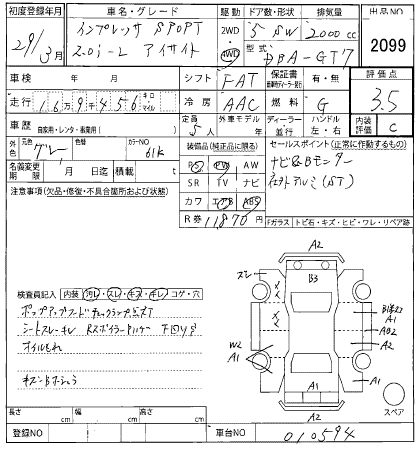 初度登録年月 車名・グレード 駆動 ドア数・形状 排気量 出品NO
29/3月 インプレッサ SPORT 2WD 5 SW 2000cc 2099
2.0i-L アイサイト 4WD 型式 DBA-GT7
車検 年 月 シフト FAT 保証書 有・無 評価点
走行 16万9千456 キロ マイル 冷房 AAC 燃料 G 3.5
車歴 自家用・レンタ・事業用( ) 定員 5人 外車モデル 年 ディーラー 並行 ハンドル 左・右 内装評価 C
外色 元色 グレー 色替 カラーNO 61K 装備品(純正品に限る) セールスポイント(正常に作動するもの)
名義変更期限 月 日迄 積載 PS PW AW ナビ&Bモニター
SR TV ナビ 社外アルミ(ST)
注意事項(欠品・修復・不具合箇所および状態) カワ エアB ABS
R券 11870円 Fガラス トビ石・キズ・ヒビ・ワレ・リペア跡
A2
スレ B3
検査員記入 内装 汚レ・スレ・キズ・キレ・コゲ・穴
A1
A2
シートスレキレ
オイルもれ
W2
A1
A1
A1
A2
スペア
長さ cm 幅 cm 高さ cm
登録NO 車台NO 010594